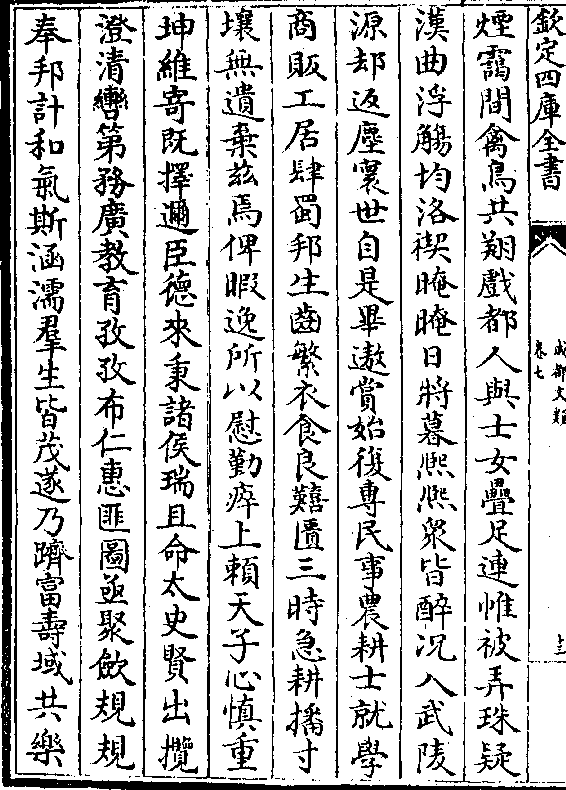 欽定四庫全書
成都文類
卷七
十三
煙靄間禽鳥共翔戲都人與士女疊足連帷被弄珠疑
漢曲浮觴均洛禊晻晻日將暮熙熙衆皆醉况入武陵
源却返塵寰世自是畢遨賞始復專民事農耕士就學
商販工居肆蜀邦生齒繁衣食良囏匱三時急耕播寸
壤無遺棄茲焉俾暇逸所以慰勤瘁上頼天子心慎重
坤維寄既擇邇臣德來秉諸侯瑞且命太史賢出攬
澄清轡第務廣教育孜孜布仁惠匪圖亟聚斂規規
奉邦計和氣斯涵濡羣生皆茂遂乃躋富壽域共樂